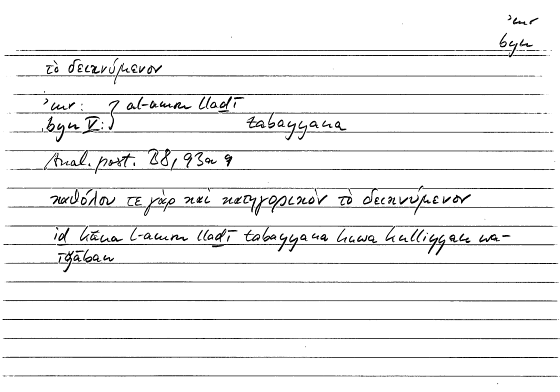 ʾmr
byn
τὸ δεικνύμενον
ʾmr: } al-amru lladī
byn V: } tabayyana
Anal. post. B8, 93a9
καθόλου τε γὰρ καὶ κατηγορικὸν τὸ δεικνύμενον
id kāna l-amru lladī tabayyana huwa kulliyyan wa-
īǧāban